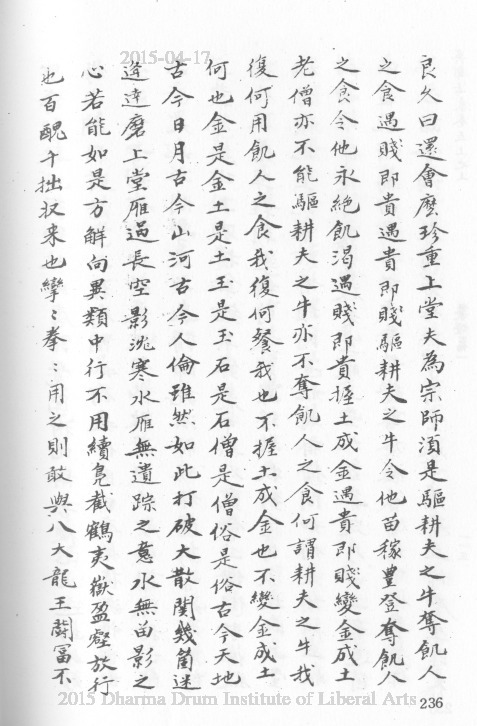 2015-04-17
良久曰還會麼珍重上堂夫為宗師湏是驅耕夫之牛奪飢人
之食遇賤即貴遇貴即賤驅耕夫之牛令他苗稼豊登奪飢人
之食令他永絕飢渴遇賤即貴握土成金遇貴即賤變金成土
老僧亦不能驅耕夫之牛亦不奪飢人之食何謂耕夫之牛我
復何用飢人之食我復何餐我也不握土成金也不變金成土
何也金是金土是土玉是玉石是石僧是僧俗是俗古今天地
古今日月古今山河古今人倫雖然如此打破大散関幾箇迷
逢達磨上堂雁過長空影沉寒水雁無遺踪之意水無畄影之
心若能如是方解向異類中行不用續鳧截鶴夷嶽盈壑放行
也百醜千拙収来也攣〻拳〻用之則敢與八大龍王鬪冨不
2015 Dharma Drum Institute of Liberal Arts
236